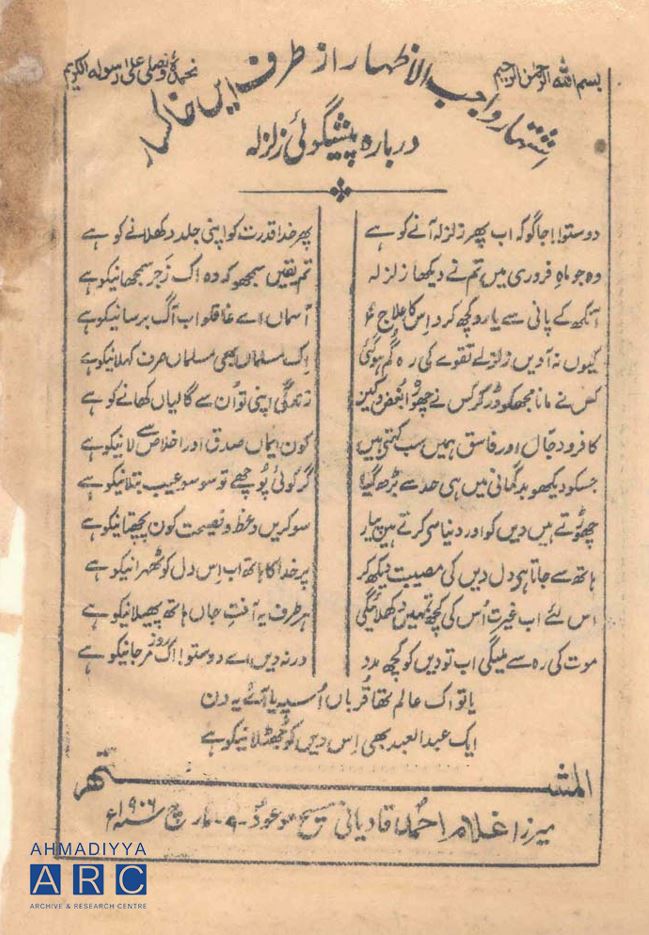 بسم اللہ الرحمٰن الرحیم
نحمدہٗ ونصلی علیٰ رسولہ الکریم
اشتہار واجب الاظہار از طرف ایں خاکسار
دربارہ پیشگوئی زلزلہ
دوستو! جاگو کہ اب پھر زلزلہ آنے کو ہے پھر خدا قدرت کو اپنی جلد دکھلانے کو ہے
وہ جو ماہِ فروری میں تم نے دیکھا زلزلہ تم یقیں سمجھو کہ وہ اک زَجر سمجھانیکو ہے
آنکھ کے پانی سے یارو کچھ کرو اِس کا علاج آسماں اے غافلو اب آگ برسانیکو ہے
کیوں نہ آویں زلزلے تقوےٰ کی رہ گم ہوگئی اِک مسلماں بھی مسلماں صرف کہلانیکو ہے
کس نے مانا مجھکو ڈر کر کس نے چھوڑا بُغض و کیں زندگی اپنی تو اُن سے گالیاں کھانے کو ہے
کافر و دجّال اور فاسق ہمیں سب کہتے ہیں کون ایماں صدق اور اخلاص سے لانیکو ہے
جسکو دیکھو بدگمانی میں ہی حد سے بڑھ گیا گر کوئی پوچھے تو سو سو عیب بتلانیکو ہے
چھوڑتے ہیں دیں کو اور دنیا سے کرتے ہیں پیار سو کریں وعظ و نصیحت کون پچھتانیکو ہے
ہاتھ سے جاتا ہے دل دیں کی مصیبت دیکھ کر پر خدا کا ہاتھ اب اِس دل کو ٹھہرانیکو ہے
اس لئے اب غیرت اُس کی کچھ تمہیں دکھلائیگی ہر طرف یہ آفتِ جاں ہاتھ پھیلانیکو ہے
موت کی رہ سے ملیگی اب تو دیں کو کچھ مدد ورنہ دیں اے دوستو! اک روز مر جانیکو ہے
یا تو اک عالم تھا قُرباں اُسپہ یا آئے یہ دن
ایک عبد العبد بھی اِس دیں کو جھٹلانیکو ہے
المشتہر
میرزا غلام احمد قادیانی مسیح موعود ۹۔ مارچ ۱۹۰۶ء
AHMADIYYA
ARC
ARCHIVE & RESEARCH CENTRE